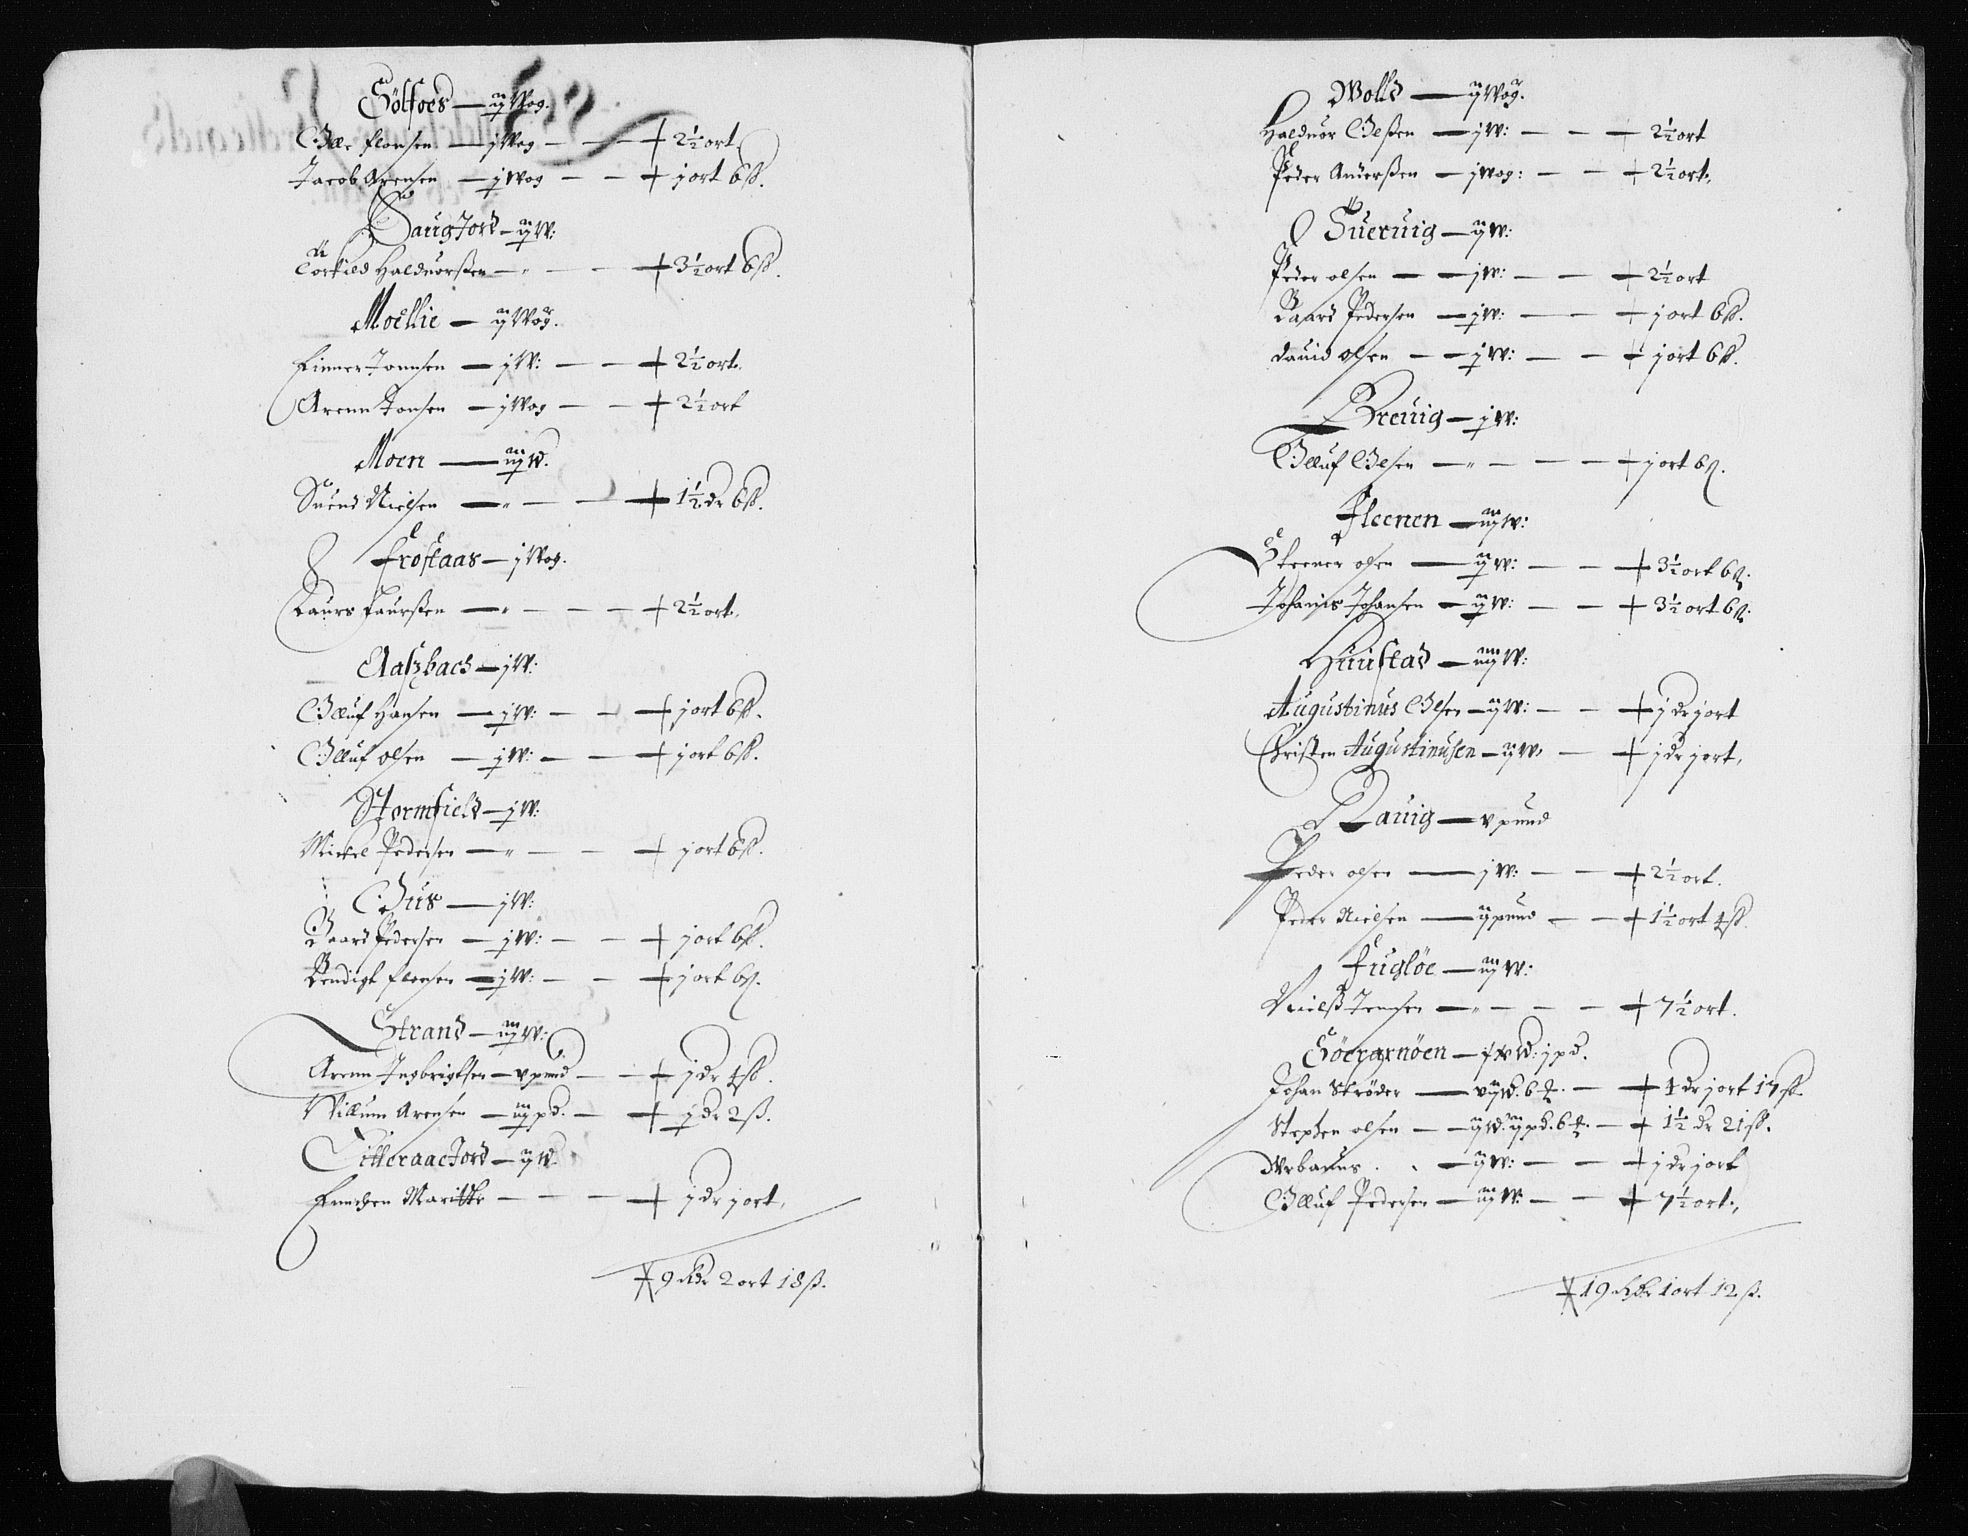 Sölfoes — ij Wog.
Olle flonsen — j Wog — — + 2½ ort.
Jacob Arensen — j Wog — — + j ort 6 ß.
Saugjord — ij W:
Törkild Halduorßen — „ — — + 3½ ort 6 ß.
Moellie — ij Wog.
Einner Jonnsen — j W: — — + 2½ ort.
Arenn Jonsen — j Wog — — + 2½ ort
Moen — iij W.
Suend Nielsen — „ — — + 1½ dr 6 ß.
Frostaas — j Wog.
Laurs Laurßen — „ — — — + 2½ ort.
Aaszbach — j W:
Olluf Hansen — j W: — — + j ort 6 ß.
Olluf olsen — j W: — — + j ort 6 ß.
Stormfield — j W:
Mickel Pedersen — „ — — + j ort 6 ß.
Bus — j W:
Baard Pedersen — j W: — — + j ort 6 ß.
Bendigt flonsen — j W: — — + j ort 6 ß.
Strand — iij W:
Arenn Ingbrigtsen — v pund — — + j dr 4 ß.
Willum Arensen — iiij pd. — + j dr 2 ß.
Tilleraacjord — ij W.
Enncken Maritte — — — + j dr j ort.
9 Rdr 2 ort 18 ß.
Wolld — ij Wog.
Halduor Olßen — j W: — — + 2½ ort
Peder Anderßen — j Wog: — — + 2½ ort.
Sueruig — ij W:
Peder olsen — — j W: — — + 2½ ort
Baard Pedersen — j W: — — + j ort 6 ß.
dauid olsen — — j W: — — + j ort 6 ß.
Breuig — j W:
Olluf Olsen — „ — — — + j ort 6 ß.
Fleenen — iiij W:
Steener olsen — ij W: — — + 3½ ort 6 ß.
Johanis Johansen — ij W: — — + 3½ ort 6 ß.
Huustad — iiij W:
Augustinus Olsen — ij W: — — + j dr j ort
Christen Augustinusen — ij W: — + j dr j ort.
Lauig — v pund
Peder olsen — j W: — — + 2½ ort.
Peder Nielsen — ij pund — — + 1½ ort 4 ß.
Fugløe — iij W:
Nielß Jensen — „ — — — + 7½ ort.
Söerarnöen — W: j pd.
Johan Skrøder — W. 6 — + 4 dr j ort 17 ß
Stephen olsen — — ij W. ij pd. 6 — + 1½ dr 21 ß.
Wrbanus . . — ij W: — — + j dr j ort
Olluf Pedersen — iij W. — — + 7½ ort.
19 Rdr 1 ort 12 ß.